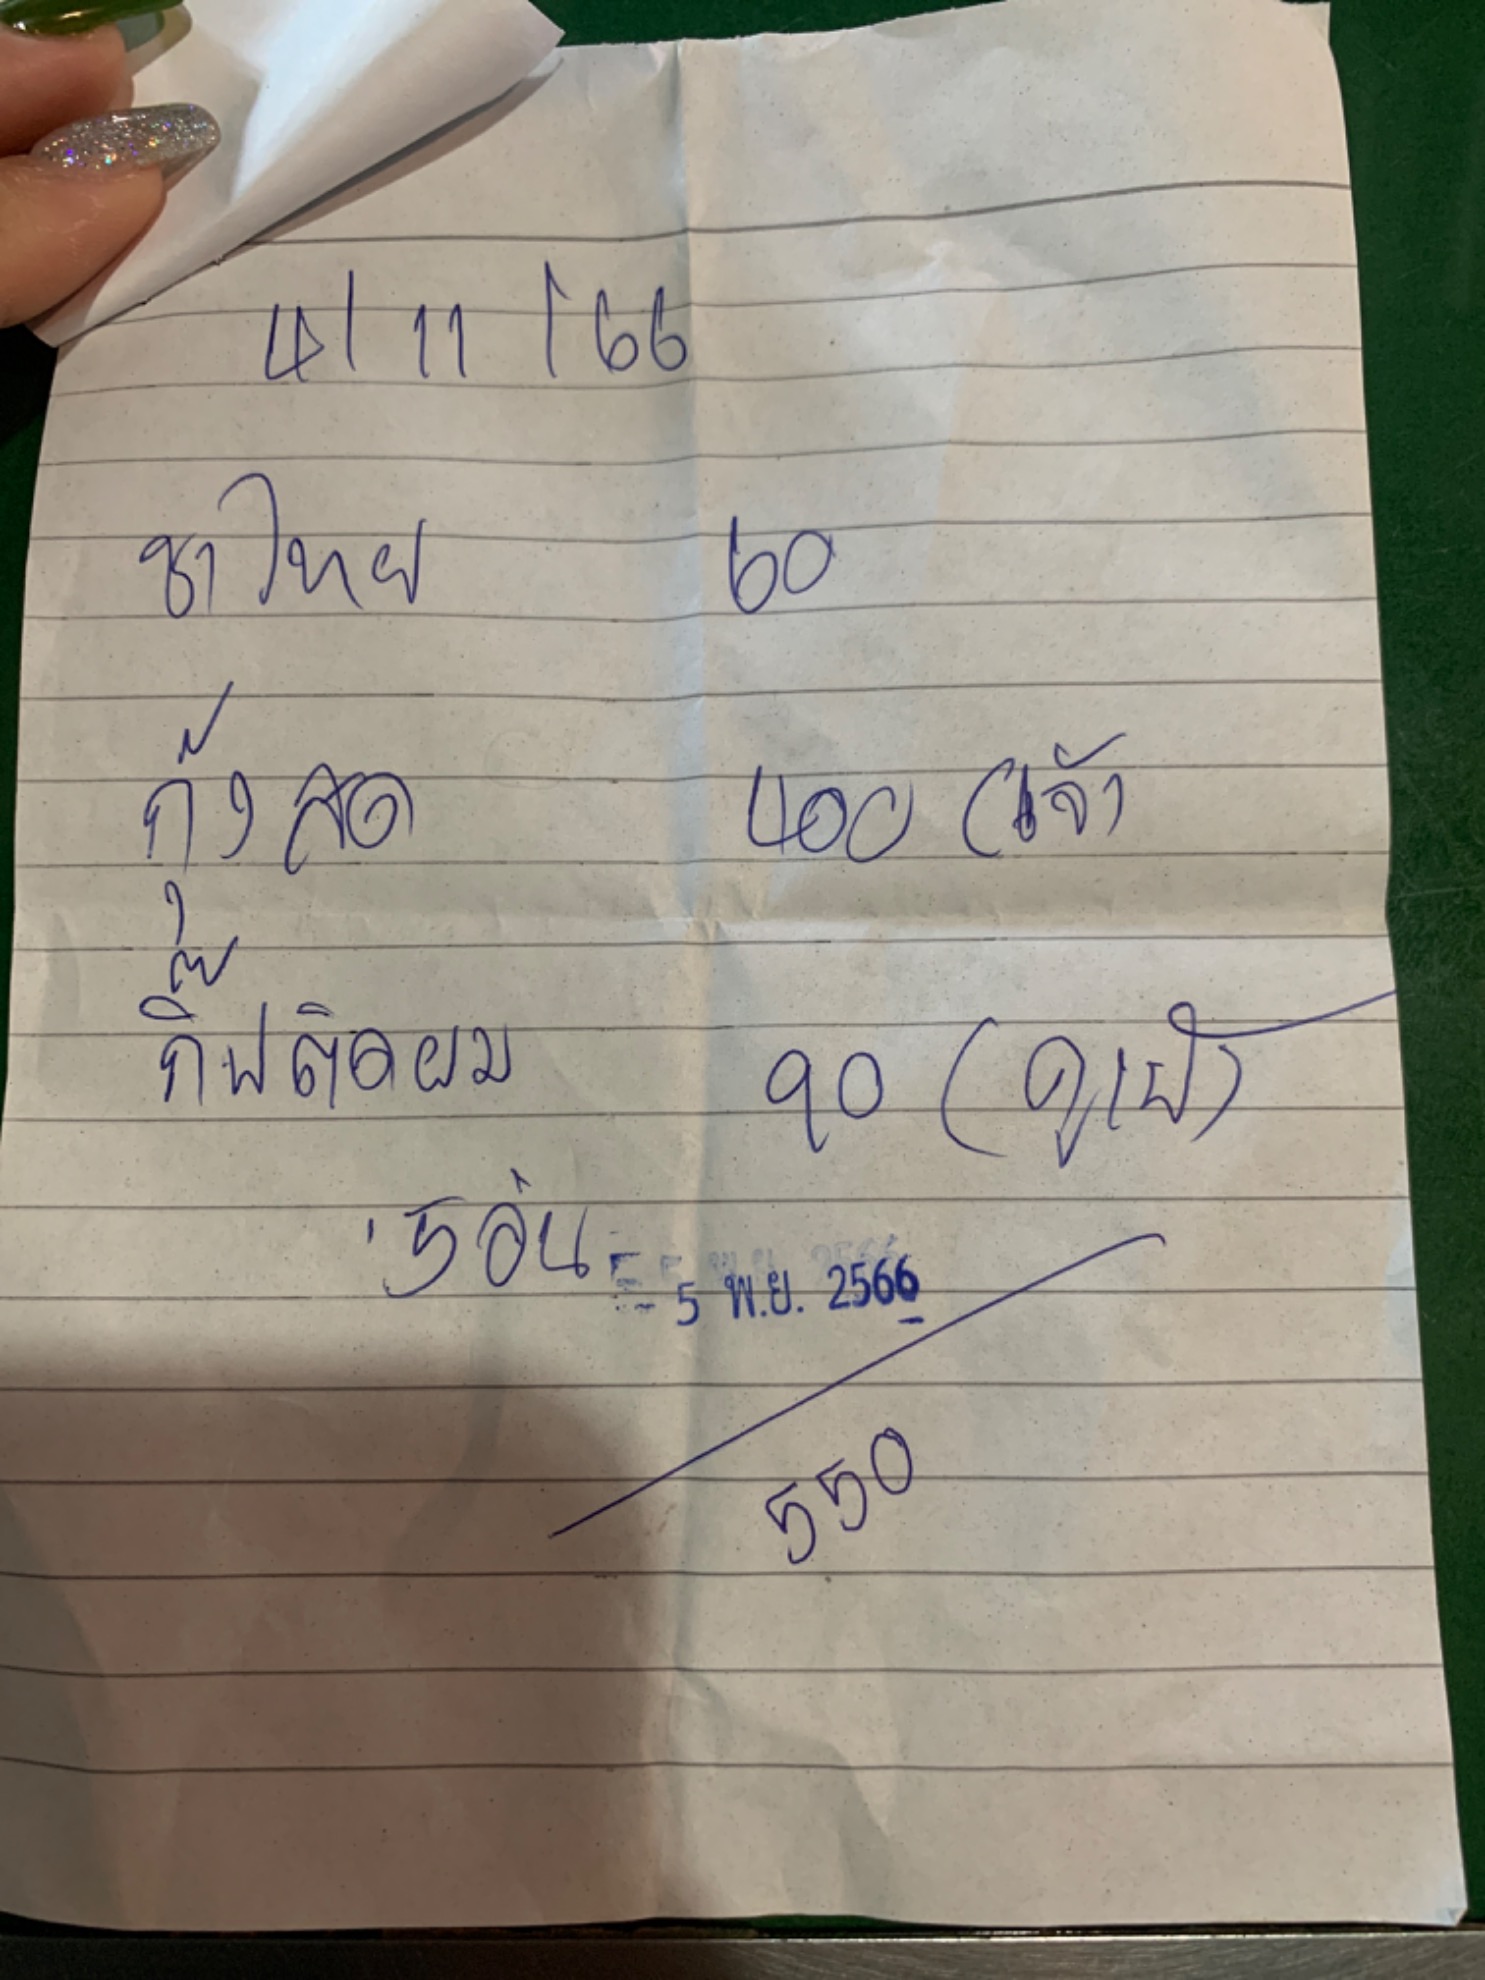 4/11/66
ชาไทย 60
กุ้งสด 400 (เจ้า
กิ๊ฟติดผม 90 (ดูเป้
5 อัน
- 5 พ.ย. 2566
550